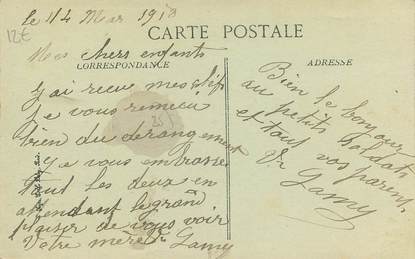 le 14 Mar 1918
12€
CARTE POSTALE
Mes chers enfants
CORRESPONDANCE
ADRESSE
J'ai recu mes clefs
Je vous remerci
bien du derangement
Je vous embrasse
tout les deux en
attendant le grand
plaisir de vous voir
Votre mère Vr Gamy
Bien le bonjour
au petits soldats
et tout vos parents
Vr Gamy